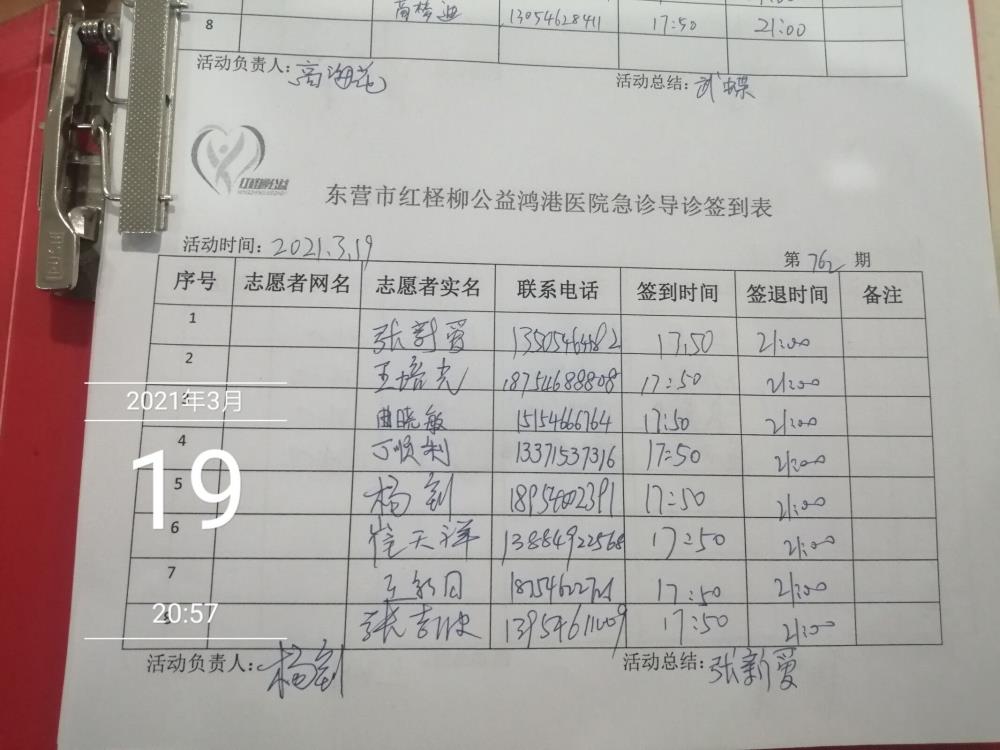 8 13054628411 17:50 21:00
活动负责人: 高海花 活动总结: 武蝶
红柽柳公益
东营市红柽柳公益鸿港医院急诊导诊签到表
活动时间: 2021.3.19 第 762 期
序号 志愿者网名 志愿者实名 联系电话 签到时间 签退时间 备注
1 张新爱 17:50 21:00
2 王培光 18754688808 17:50 21:00
3 曲晓敏 15154666764 17:50 21:00
4 丁顺利 13371537316 17:50 21:00
5 杨剑 18954002391 17:50 21:00
6 崔天祥 13884922568 17:50 21:00
7 17:50 21:00
8 17:50 21:00
活动负责人: 杨剑 活动总结: 张新爱
2021年3月
19
20:57
PUSH